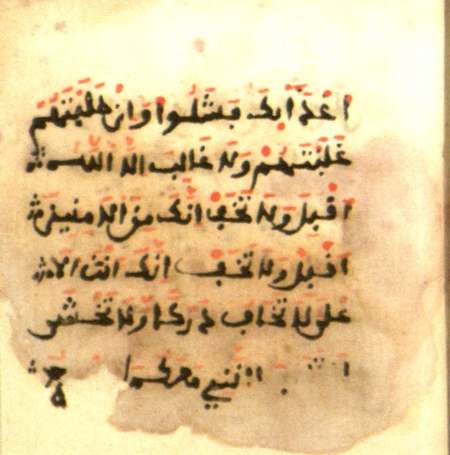 فشلوا وان طلبتهم
غلبتهم ولا غالب الا الله
اقبل ولا تخف انك من الامنين
اقبل ولا تخف انك انت الا
على لا تخاف دركا ولا تخشى
انني معكما